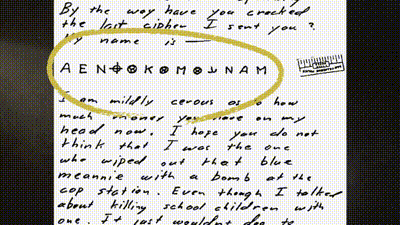 By the way have you cracked
the last cipher I sent you?
My name is —
A E N ⌖ ⊗ K ⊗ M ⊗ ⅃ N A M
I am mildly cerous as to how
much money you have on my
head now. I hope you do not
think that I was the one
who wiped out that blue
meannie with a bomb at the
cop station. Even though I talked
about killing school children with
one. It just wouldnt doo to